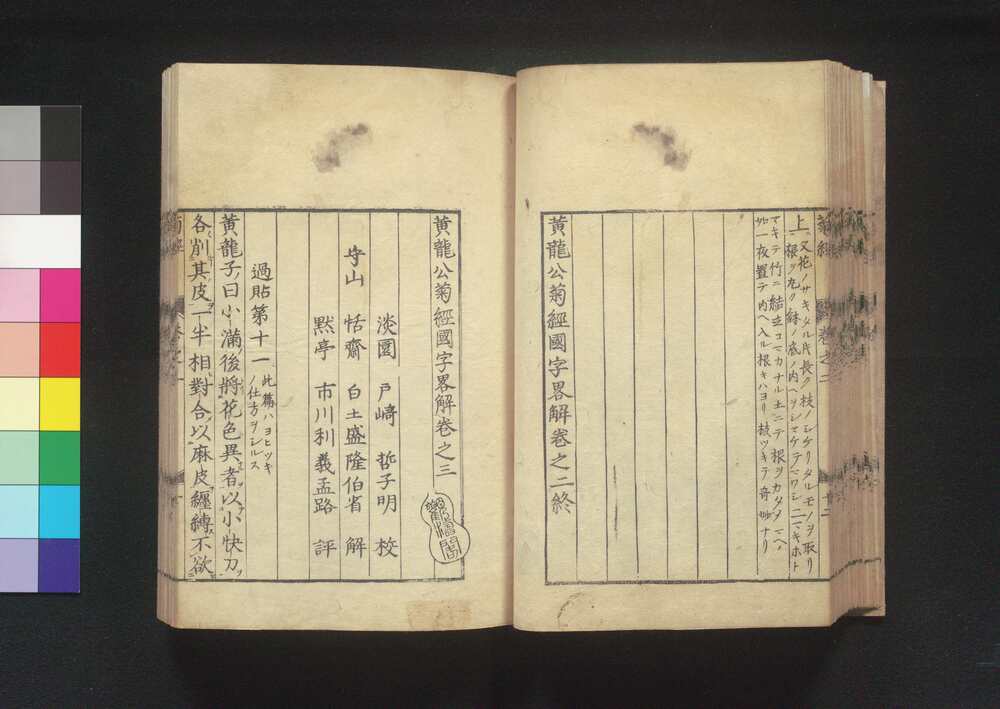 菊經 卷之二 廿二
上ニ又花ノサキタル氏長ク枝ノシゲリタルモノヲ取リ
根ヲ丸ク鉢ノ底ノ内ヘヲシマゲテマワシ二マキホト
マキテ竹ニ結立コマカナル土ニテ根ヲカタメコヘノ
如一夜置テ内ヘ入ル根キハヨリ枝ツキテ奇妙ナリ
黃龍公菊經國字畧解卷之二終
黃龍公菊經國字畧解卷之三
淡園 戸﨑 哲子明 校
守山 恬齋 白土盛隆伯省 解
黙亭 市川利義孟路 評
過貼第十一 此篇ハヨヒツキ
ノ仕方ヲシルス
黃龍子ノ曰小滿後將花色異者以小快刀
各削其皮一半相對合以麻皮纏縛不欲